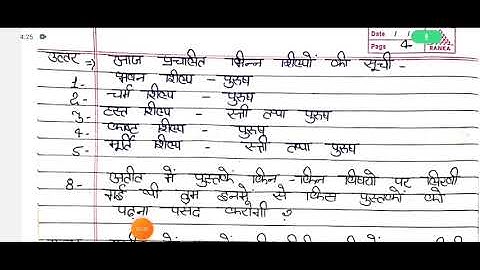 4:25
Date / /
Page 4
RANKA
उत्तर ⇒ आज प्रचलित भिन्न शिल्पों की सूची -
1- भवन शिल्प - पुरुष
2- चर्म शिल्प - पुरुष
3- हस्त शिल्प - स्त्री तथा पुरुष
4- काष्ट शिल्प - पुरुष
5- मूर्ति शिल्प - स्त्री तथा पुरुष
8- अतीत में पुस्तकें किन - किन विषयो पर लिखी
गई थी तुम इनमें से किस पुस्तकों को
पढ़ना पसंद करोगी ?